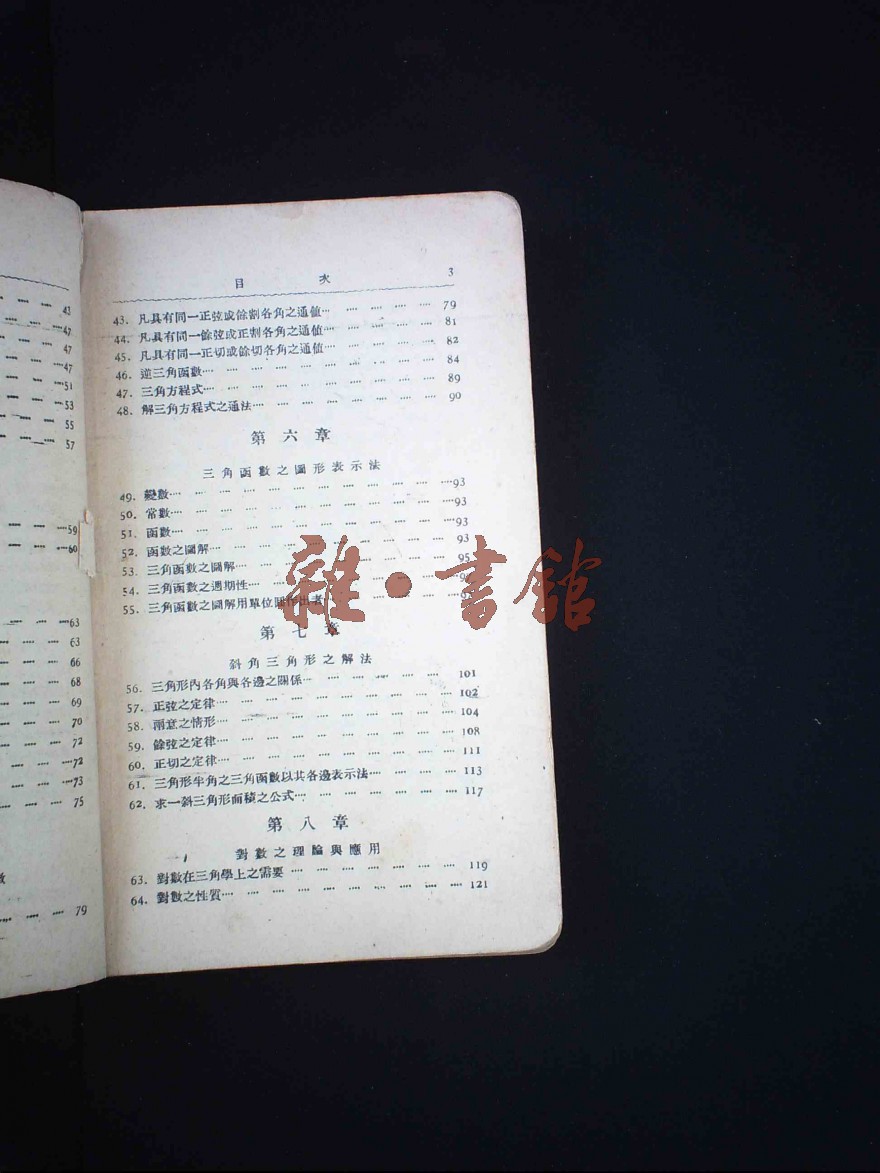 43
47
47
47
51
53
55
57
59
60
63
63
66
68
69
70
72
72
73
75
數
79
目 次 3
43. 凡具有同一正弦或餘割各角之通値 79
44. 凡具有同一餘弦或正割各角之通値 81
45. 凡具有同一正切或餘切各角之通値 82
46. 逆三角函數 84
47. 三角方程式 89
48. 解三角方程式之通法 90
第六章
三角函數之圖形表示法
49. 變數 93
50. 常數 93
51. 函數 93
52. 函數之圖解 93
53. 三角函數之圖解 95
54. 三角函數之週期性
55. 三角函數之圖解用單位圓作出者
第七章
斜角三角形之解法
56. 三角形內各角與各邊之關係 101
57. 正弦之定律 102
58. 兩意之情形 104
59. 餘弦之定律 108
60. 正切之定律 111
61. 三角形半角之三角函數以其各邊表示法 113
62. 求一斜三角形面積之公式 117
第八章
對數之理論與應用
63. 對數在三角學上之需要 119
64. 對數之性質 121
雜·書館